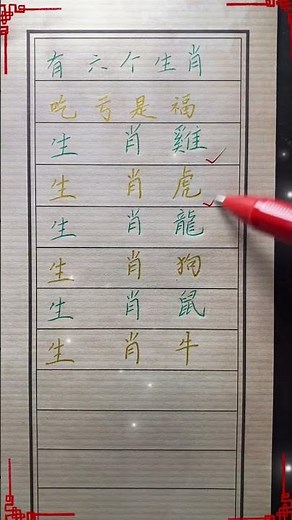 有六个生肖
吃亏是福
生肖雞
生肖虎
生肖龍
生肖狗
生肖鼠
生肖牛